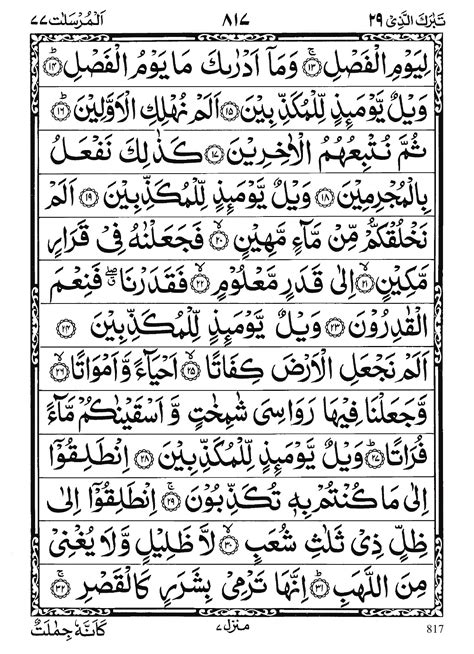 تَبٰرَكَ الَّذِیْ ٢٩ ٨١٧ اَلْمُرْسَلٰت ٧٧
لِيَوْمِ الْفَصْلِ ۝١٣ وَمَاۤ اَدْرٰىكَ مَا يَوْمُ الْفَصْلِ ۝١٤
وَيْلٌ يَّوْمَئِذٍ لِّلْمُكَذِّبِيْنَ ۝١٥ اَلَمْ نُهْلِكِ الْاَوَّلِيْنَ ۝١٦
ثُمَّ نُتْبِعُهُمُ الْاٰخِرِيْنَ ۝١٧ كَذٰلِكَ نَفْعَلُ
بِالْمُجْرِمِيْنَ ۝١٨ وَيْلٌ يَّوْمَئِذٍ لِّلْمُكَذِّبِيْنَ ۝١٩ اَلَمْ
نَخْلُقْكُّمْ مِّنْ مَّآءٍ مَّهِيْنٍ ۝٢٠ فَجَعَلْنٰهُ فِيْ قَرَارٍ
مَّكِيْنٍ ۝٢١ اِلٰى قَدَرٍ مَّعْلُوْمٍ ۝٢٢ فَقَدَرْنَا ۖ فَنِعْمَ
الْقٰدِرُوْنَ ۝٢٣ وَيْلٌ يَّوْمَئِذٍ لِّلْمُكَذِّبِيْنَ ۝٢٤
اَلَمْ نَجْعَلِ الْاَرْضَ كِفَاتًا ۝٢٥ اَحْيَآءً وَّاَمْوَاتًا ۝٢٦
وَّجَعَلْنَا فِيْهَا رَوَاسِيَ شٰمِخٰتٍ وَّاَسْقَيْنٰكُمْ مَّآءً
فُرَاتًا ۝٢٧ وَيْلٌ يَّوْمَئِذٍ لِّلْمُكَذِّبِيْنَ ۝٢٨ اِنْطَلِقُوْۤا
اِلٰى مَا كُنْتُمْ بِهٖ تُكَذِّبُوْنَ ۝٢٩ اِنْطَلِقُوْۤا اِلٰى
ظِلٍّ ذِيْ ثَلٰثِ شُعَبٍ ۝٣٠ لَّا ظَلِيْلٍ وَّلَا يُغْنِيْ
مِنَ اللَّهَبِ ۝٣١ اِنَّهَا تَرْمِيْ بِشَرَرٍ كَالْقَصْرِ ۝٣٢
كَاَنَّهٗ جِمٰلَتٌ منزل ٧ 817